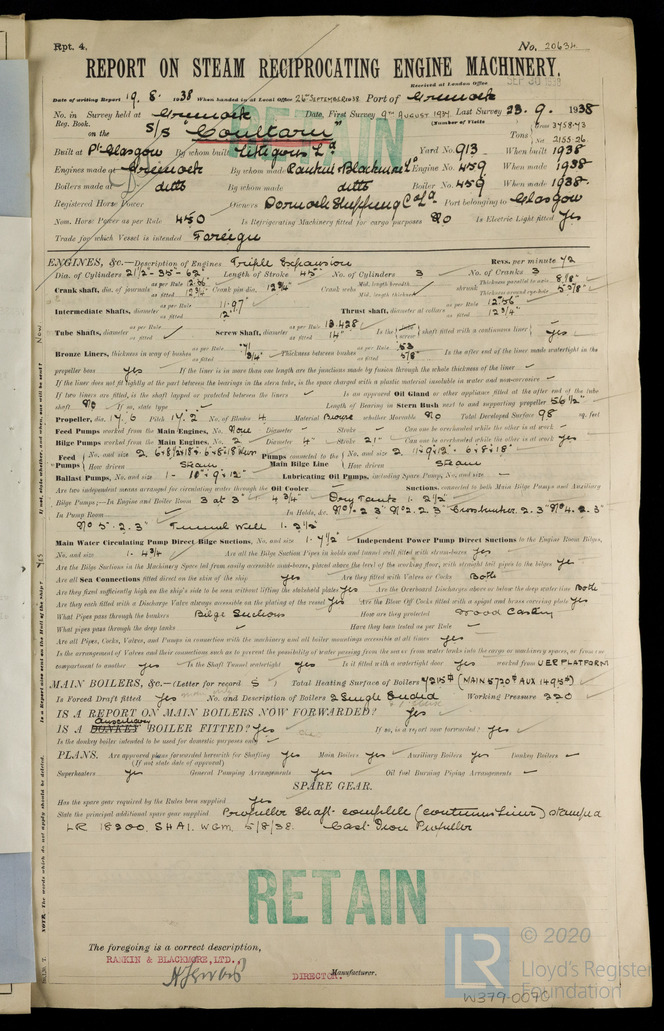 Rpt. 4.
No. 20634
REPORT ON STEAM RECIPROCATING ENGINE MACHINERY.
Received at London Office SEP 30 1938
Date of writing Report 19. 8. 1938 When handed in at Local Office 26 SEPTEMBER 1938 Port of Greenock
No. in Reg. Book. Survey held at Greenock Date, First Survey 9TH AUGUST 1937 Last Survey 23. 9. 1938
(Number of Visits
on the S/S "Coultarn" Tons Gross 3758.43 Net 2155.26
Built at Pt Glasgow By whom built Lithgows Ld Yard No. 913 When built 1938
Engines made at Greenock By whom made Rankin & Blackmore Ld Engine No. 459 When made 1938
Boilers made at ditto By whom made ditto Boiler No. 459 When made 1938
Registered Horse Power Owners Dornoch Shipping Co Ld Port belonging to Glasgow
Nom. Horse Power as per Rule 450 Is Refrigerating Machinery fitted for cargo purposes No Is Electric Light fitted Yes
Trade for which Vessel is intended Foreign
ENGINES, &c.—Description of Engines Triple Expansion Revs. per minute 72
Dia. of Cylinders 21½-35-62 Length of Stroke 45" No. of Cylinders 3 No. of Cranks 3
Crank shaft, dia. of journals as per Rule as fitted 12¾" Crank pin dia. 12¾" Crank webs Mid. length breadth Mid. length thickness shrunk Thickness parallel to axis 8⅛" Thickness around eye-hole
Intermediate Shafts, diameter as per Rule 11.97" as fitted 12" Thrust shaft, diameter at collars as per Rule 12.56" as fitted 12¾"
Tube Shafts, diameter as per Rule as fitted Screw Shaft, diameter as per Rule 13.428 as fitted 14" Is the screw shaft fitted with a continuous liner yes
Bronze Liners, thickness in way of bushes as per Rule .71 as fitted ¾" Thickness between bushes as per Rule .53 as fitted ⅝" Is the after end of the liner made watertight in the
propeller boss yes If the liner is in more than one length are the junctions made by fusion through the whole thickness of the liner
If the liner does not fit tightly at the part between the bearings in the stern tube, is the space charged with a plastic material insoluble in water and non-corrosive
If two liners are fitted, is the shaft lapped or protected between the liners Is an approved Oil Gland or other appliance fitted at the after end of the tube
shaft No If so, state type Length of Bearing in Stern Bush next to and supporting propeller 56½"
Propeller, dia. 17'.6 Pitch 17'.2" No. of Blades 4 Material Bronze whether Moveable No Total Developed Surface 98 sq. feet
Feed Pumps worked from the Main Engines, No. None Diameter Stroke Can one be overhauled while the other is at work
Bilge Pumps worked from the Main Engines, No. 2 Diameter 4" Stroke 21" Can one be overhauled while the other is at work yes
Feed Pumps No. and size 2. How driven Steam Pumps connected to the Main Bilge Line No. and size 2. 11×9×12 - 6×8×18" How driven Steam
Ballast Pumps, No. and size 1- 10×9×12" Lubricating Oil Pumps, including Spare Pump, No. and size
Are two independent means arranged for circulating water through the Oil Cooler Suctions, connected to both Main Bilge Pumps and Auxiliary
Bilge Pumps;—In Engine and Boiler Room 3 at 3" 4¾" Dry Tank 1. 2½"
In Pump Room In Holds, &c. No 1. 2 3" No 2. 2 3" Crossbunker. 2. 3" No 4. 2. 3"
No 5. 2. 3" Tunnel Well 1. 2½"
Main Water Circulating Pump Direct Bilge Suctions, No. and size 1- 7½" Independent Power Pump Direct Suctions to the Engine Room Bilges,
No. and size 1- 4¾" Are all the Bilge Suction Pipes in holds and tunnel well fitted with strum-boxes yes
Are the Bilge Suctions in the Machinery Space led from easily accessible mud-boxes, placed above the level of the working floor, with straight tail pipes to the bilges yes
Are all Sea Connections fitted direct on the skin of the ship yes Are they fitted with Valves or Cocks Both
Are they fixed sufficiently high on the ship's side to be seen without lifting the stokehold plates yes Are the Overboard Discharges above or below the deep water line Both
Are they each fitted with a Discharge Valve always accessible on the plating of the vessel yes Are the Blow Off Cocks fitted with a spigot and brass covering plate yes
What Pipes pass through the bunkers Bilge Suctions How are they protected Wood Casing
What pipes pass through the deep tanks Have they been tested as per Rule
Are all Pipes, Cocks, Valves, and Pumps in connection with the machinery and all boiler mountings accessible at all times yes
Is the arrangement of Valves and their connections such as to prevent the possibility of water passing from the sea or from water tanks into the cargo or machinery spaces, or from one
compartment to another yes Is the Shaft Tunnel watertight yes Is it fitted with a watertight door yes worked from UER PLATFORM
MAIN BOILERS, &c.—(Letter for record S) Total Heating Surface of Boilers 7215 (MAIN 5720 AUX 1495)
Is Forced Draft fitted Yes No. and Description of Boilers 2 Single Ended Working Pressure 220
IS A REPORT ON MAIN BOILERS NOW FORWARDED? Yes
IS A DONKEY Auxiliary BOILER FITTED? Yes If so, is a report now forwarded? Yes
Is the donkey boiler intended to be used for domestic purposes only
PLANS. Are approved plans forwarded herewith for Shafting Yes Main Boilers Yes Auxiliary Boilers Yes Donkey Boilers
(If not state date of approval)
Superheaters Yes General Pumping Arrangements Yes Oil fuel Burning Piping Arrangements
SPARE GEAR.
Has the spare gear required by the Rules been supplied Yes
State the principal additional spare gear supplied Propeller Shaft complete (continuous Liner) stamped
LR 18200. SHAI. WGM. 5/8/38. Cast Iron Propeller
RETAIN
RETAIN
The foregoing is a correct description,
RANKIN & BLACKMORE, LTD.,
DIRECTOR. Manufacturer.
© 2020
LR
Lloyd's Register
Foundation
W379-0070